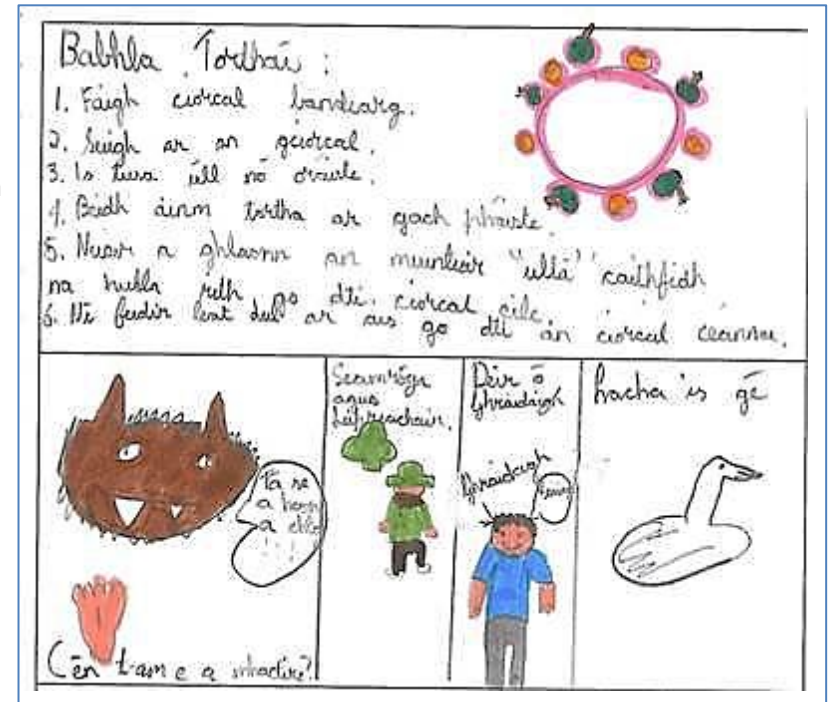 Babhla Torthaí:
1. Faigh ciorcal bándearg.
2. Suigh ar an gciorcal.
3. Is tusa úll nó oráiste.
4. Beidh ainm tortha ar gach pháiste.
5. Nuair a ghlaonn an múinteoir "ullá" caithfidh
na hulla rith go dtí ciorcal eile.
6. Ní feidir leat dul ar ais go dtí an ciorcal céanna.
Tá sé
a
a chlog
! ! !
Cén t-am e a mhactíre?
Seamróga
agus
Leipreachain.
Deir Ó
Ghrádaigh
Ghrádaigh
Lacha is gé